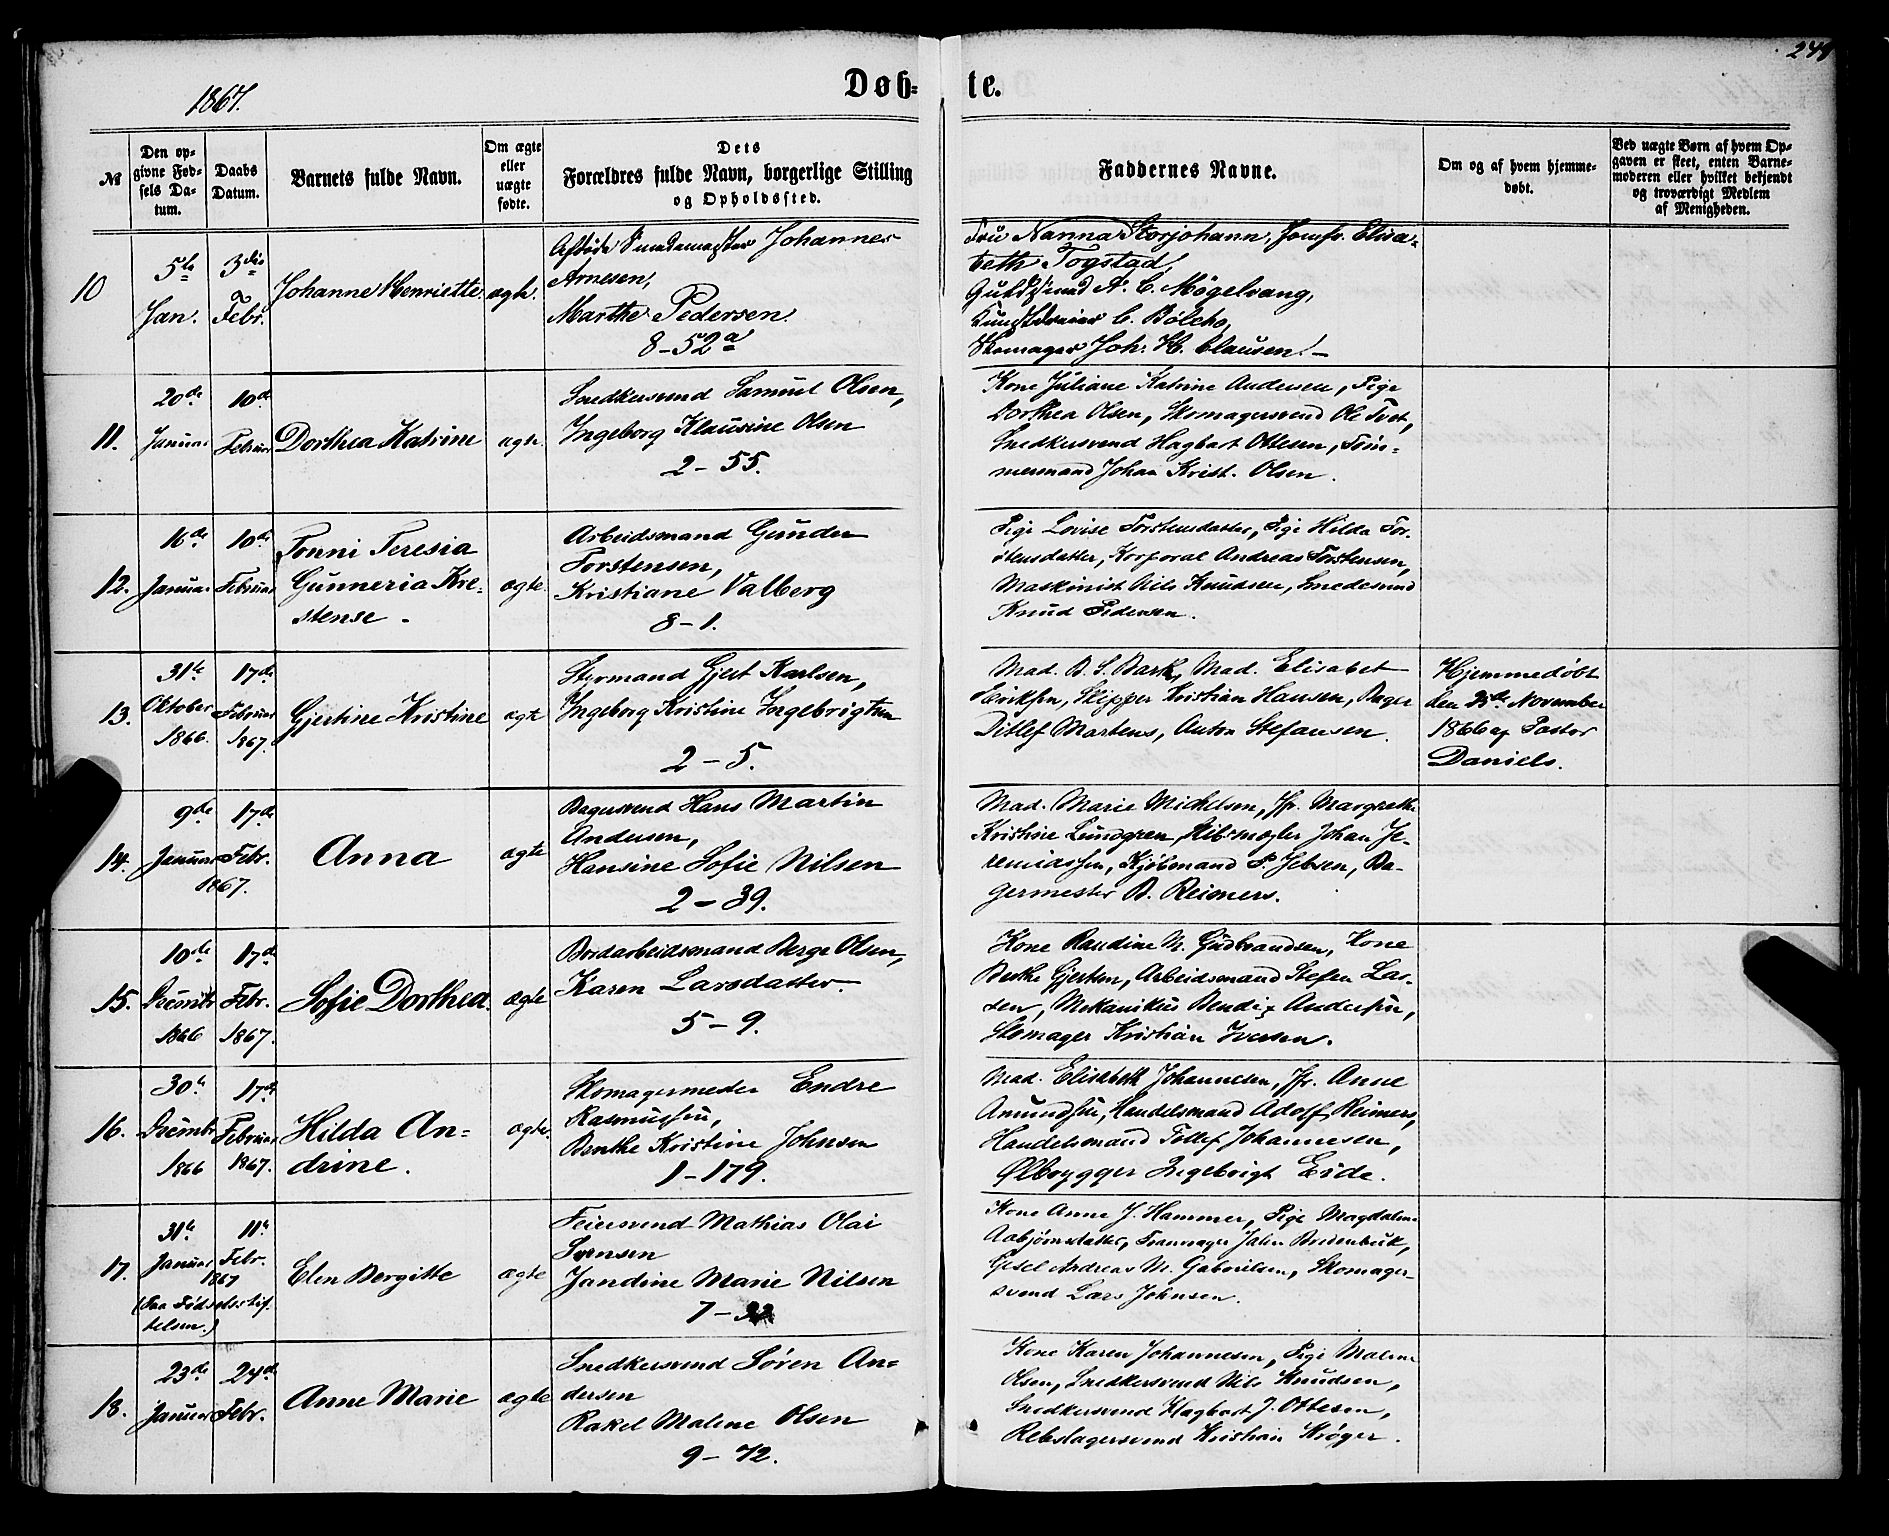 244
1867.
Døb-
te.
№
Den op-
givne Fød-
sels Da-
tum.
Daabs
Datum.
Barnets fulde Navn.
Om ægte
eller
uægte
fødte.
Dets
Forældres fulde Navn, borgerlige Stilling
og Opholdssted.
Faddernes Navne.
Om og af hvem hjemme-
døbt.
Ved uægte Børn af hvem Op-
gaven er skeet, enten Barne-
moderen eller hvilket bekjendt
og troværdigt Medlem
af Menigheden.
10
5te
Jan.
3die
Febr.
Johanne Henriette.
ægte.
Johannes
Arnesen,
Marthe Pedersen.
8-52a
Fru Nanna Storjohann, Jomfr. Elisa-
beth Togstad,
Guldsmed A. C. Møgelvang,
Kunstdreier C. Bølcho,
Skomager Joh: H. Clausen! -
11.
20de
Januar
10de
Februar
Dorthea Katrine
ægte.
Snedkersvend Samuel Olsen,
Ingeborg Klausine Olsen
2-55.
Kone Juliane Katrine Andersen, Pige
Dorthea Olsen, Skomagersvend Ole Tvet,
Snedkersvend Hagbart Ottesen, Tøm-
mermand Johan Krist. Olsen.
12.
16de
Januar
10de
Februar
Tonni Teresia
Gunneria Kre-
stense -
ægte.
Arbeidsmand Gunder
Torstensen,
Kristiane Valberg
8-1.
Pige Lovise Torstensdatter, Pige Hilda Tor-
stensdatter, Korporal Andreas Torstensen,
Maskinist Nils Knudsen, Smedesvend
Knud Pedersen.
13.
31te
Oktober
1866.
17de
Februar
1867.
Gjertine Kristine
ægte
Styrmand Gjert Karlsen,
Ingeborg Kristine Ingebrigtsen
2-5.
Mad. B. S. Bark, Mad. Elisabet
Eriksen, Skipper Kristian Hansen, Bager
Ditlef Martens, Anton Stefansen.
Hjemmedøbt
den November
1866 af Pastor
Daniels.
14.
9de
Januar
17de
Febr.
1867.
Anna
ægte
Bagersvend Hans Martin
Andersen,
Hansine Sofie Nilsen
2-39.
Mad. Marie Michelsen, Jfr. Margrethe
Kristine Lundgren, Skibsmægler Johan Je-
remiassen, Kjøbmand P. Jebsen, Ba-
germester B. Reimers.
15.
10de
Decembr
1866
17de
Febr.
1867.
Sofie Dorthea.
ægte
Bordarbeidsmand Berge Olsen,
Karen Larsdatter.
5-9.
Kone Randine M. Gudbrandsen, Kone
Berthe Gjertsen, Arbeidsmand Stefen Lar-
sen, Mekanikus Bendix Andersen,
Skomager Kristian Iversen.
16.
30te
Decembr
1866
17de
Februar
1867.
Hilda An-
drine.
ægte.
Skomagermester Endre
Rasmussen,
Benthe Kristine Johnsen
1-179.
Mad. Elisabeth Johannesen, Jfr. Anne
Amundsen, Handelsmand Adolf Reimers,
Handelsmand Tollef Johannesen,
Ølbrygger Ingebrigt Eide.
17.
31te
Januar
11te
Febr.
1867
(Fra Fødselsstif-
telsen.)
Elen Bergitte
ægte
Feiersvend Mathias Olai
Sørensen
Jandine Marie Nilsen
7-
Kone Anne J. Hammer, Pige Magdalene
Asbjørnsdatter, Garnmager Jahn Bredenbeck,
Gesel Andreas M. Gabrielsen, Skomager-
svend Lars Johnsen.
18.
23de
Januar
24de
Febr.
Anne Marie
ægte
Snedkersvend Søren An-
dersen
Rakel Malene Olsen
9-72.
Kone Karen Johannesen, Pige Malene
Olsen, Snedkersvend Nils Knudsen,
Snedkersvend Hagbart J. Ottesen,
Rebslagersvend Kristian Krøger.